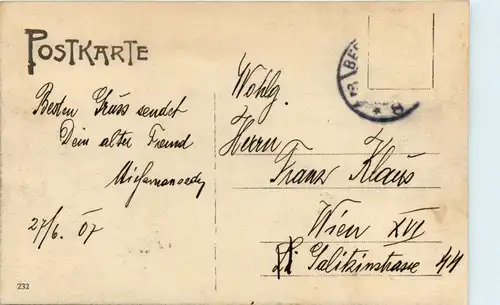 POSTKARTE
Besten Gruss sendet
Dein alter Freund
27/6. 07
232
Wohlg.
Herrn
Franz Klaus
Wien XVI
Galitzinstrasse 44
BER